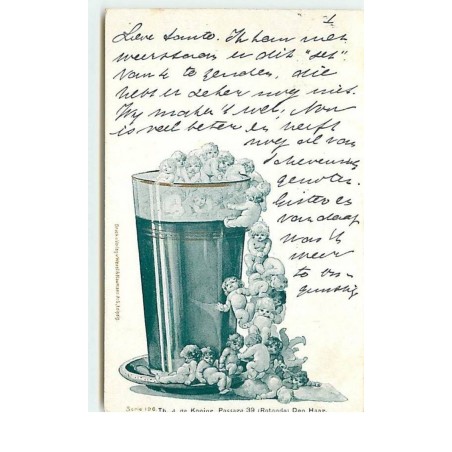 Lieve tante. Ik kan niet
weerstaan u dit "set"
van 4 te zenden, die
hebt u zeker nog niet.
Wij maken 't wel, Nor
is veel beter en heeft
nog al van
Scheveningen
genoten.
Gisteren
vandaag
was 't
weer
te on-
gunstig
Serie 196. Th. J. de Koning, Passage 39 (Rotonde) Den Haag.